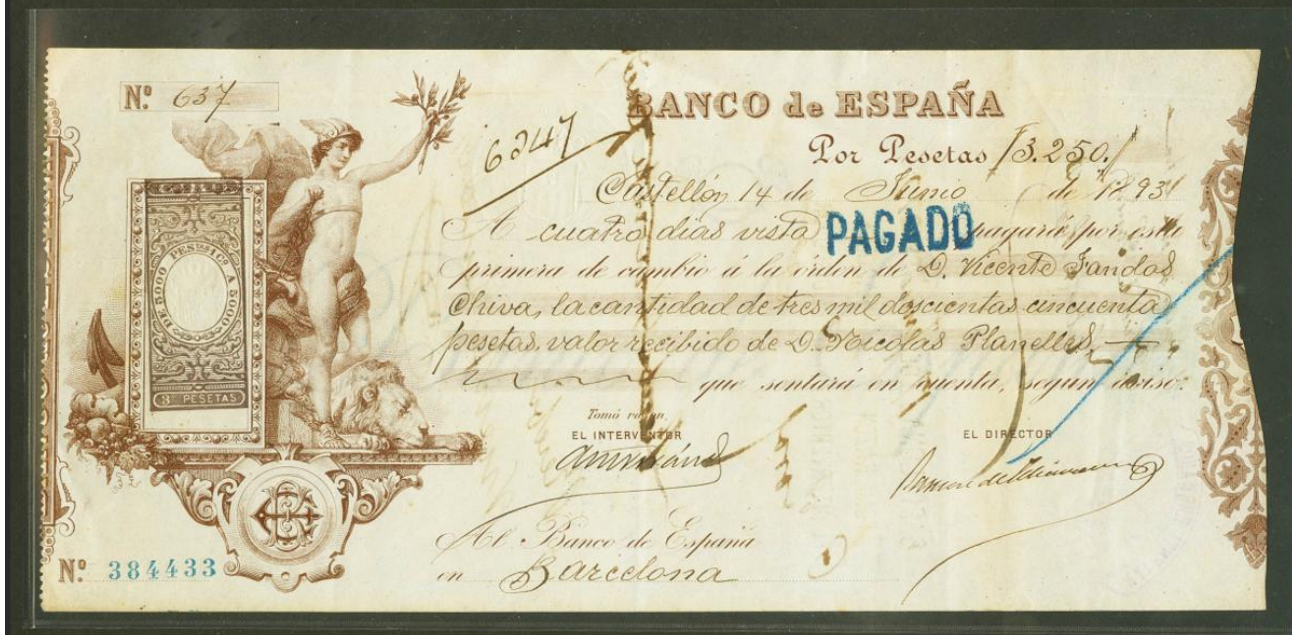 Nº 637
BANCO de ESPAÑA
6247
Por Pesetas /3.250./
Castellón 14 de Junio de 1893
A cuatro dias vista pagará por esta
PAGADO
primera de cambio á la órden de D. Vicente Fandos
Chiva, la cantidad de tres mil doscientas cincuenta
pesetas valor recibido de D. Nicolás Planelles
que sentará en cuenta, segun aviso.
DE 5000 PESTAS 1 Cº A 5000
3 PESETAS
Tomó razon,
EL INTERVENTOR
EL DIRECTOR
Al Banco de España
en Barcelona
Nº 384433